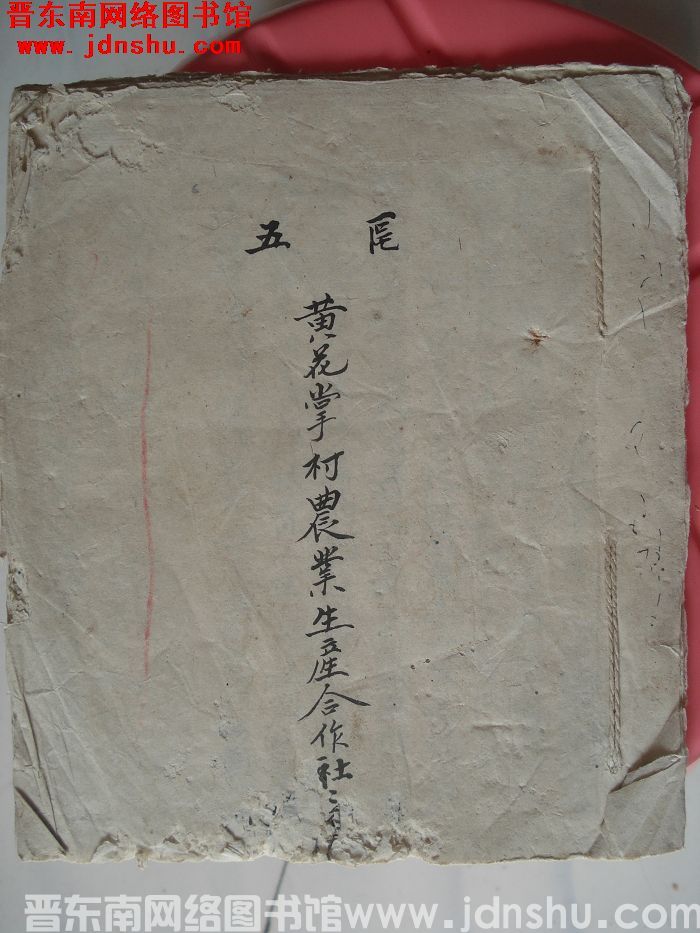 晋东南网络图书馆
www.jdnshu.com
五
黄花掌村農業生產合作社
晋东南网络图书馆www.jdnshu.com